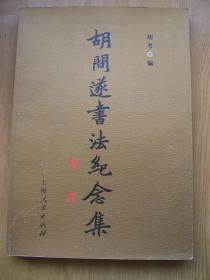 胡考·编
胡问遂书法纪念集
上海人民出版社